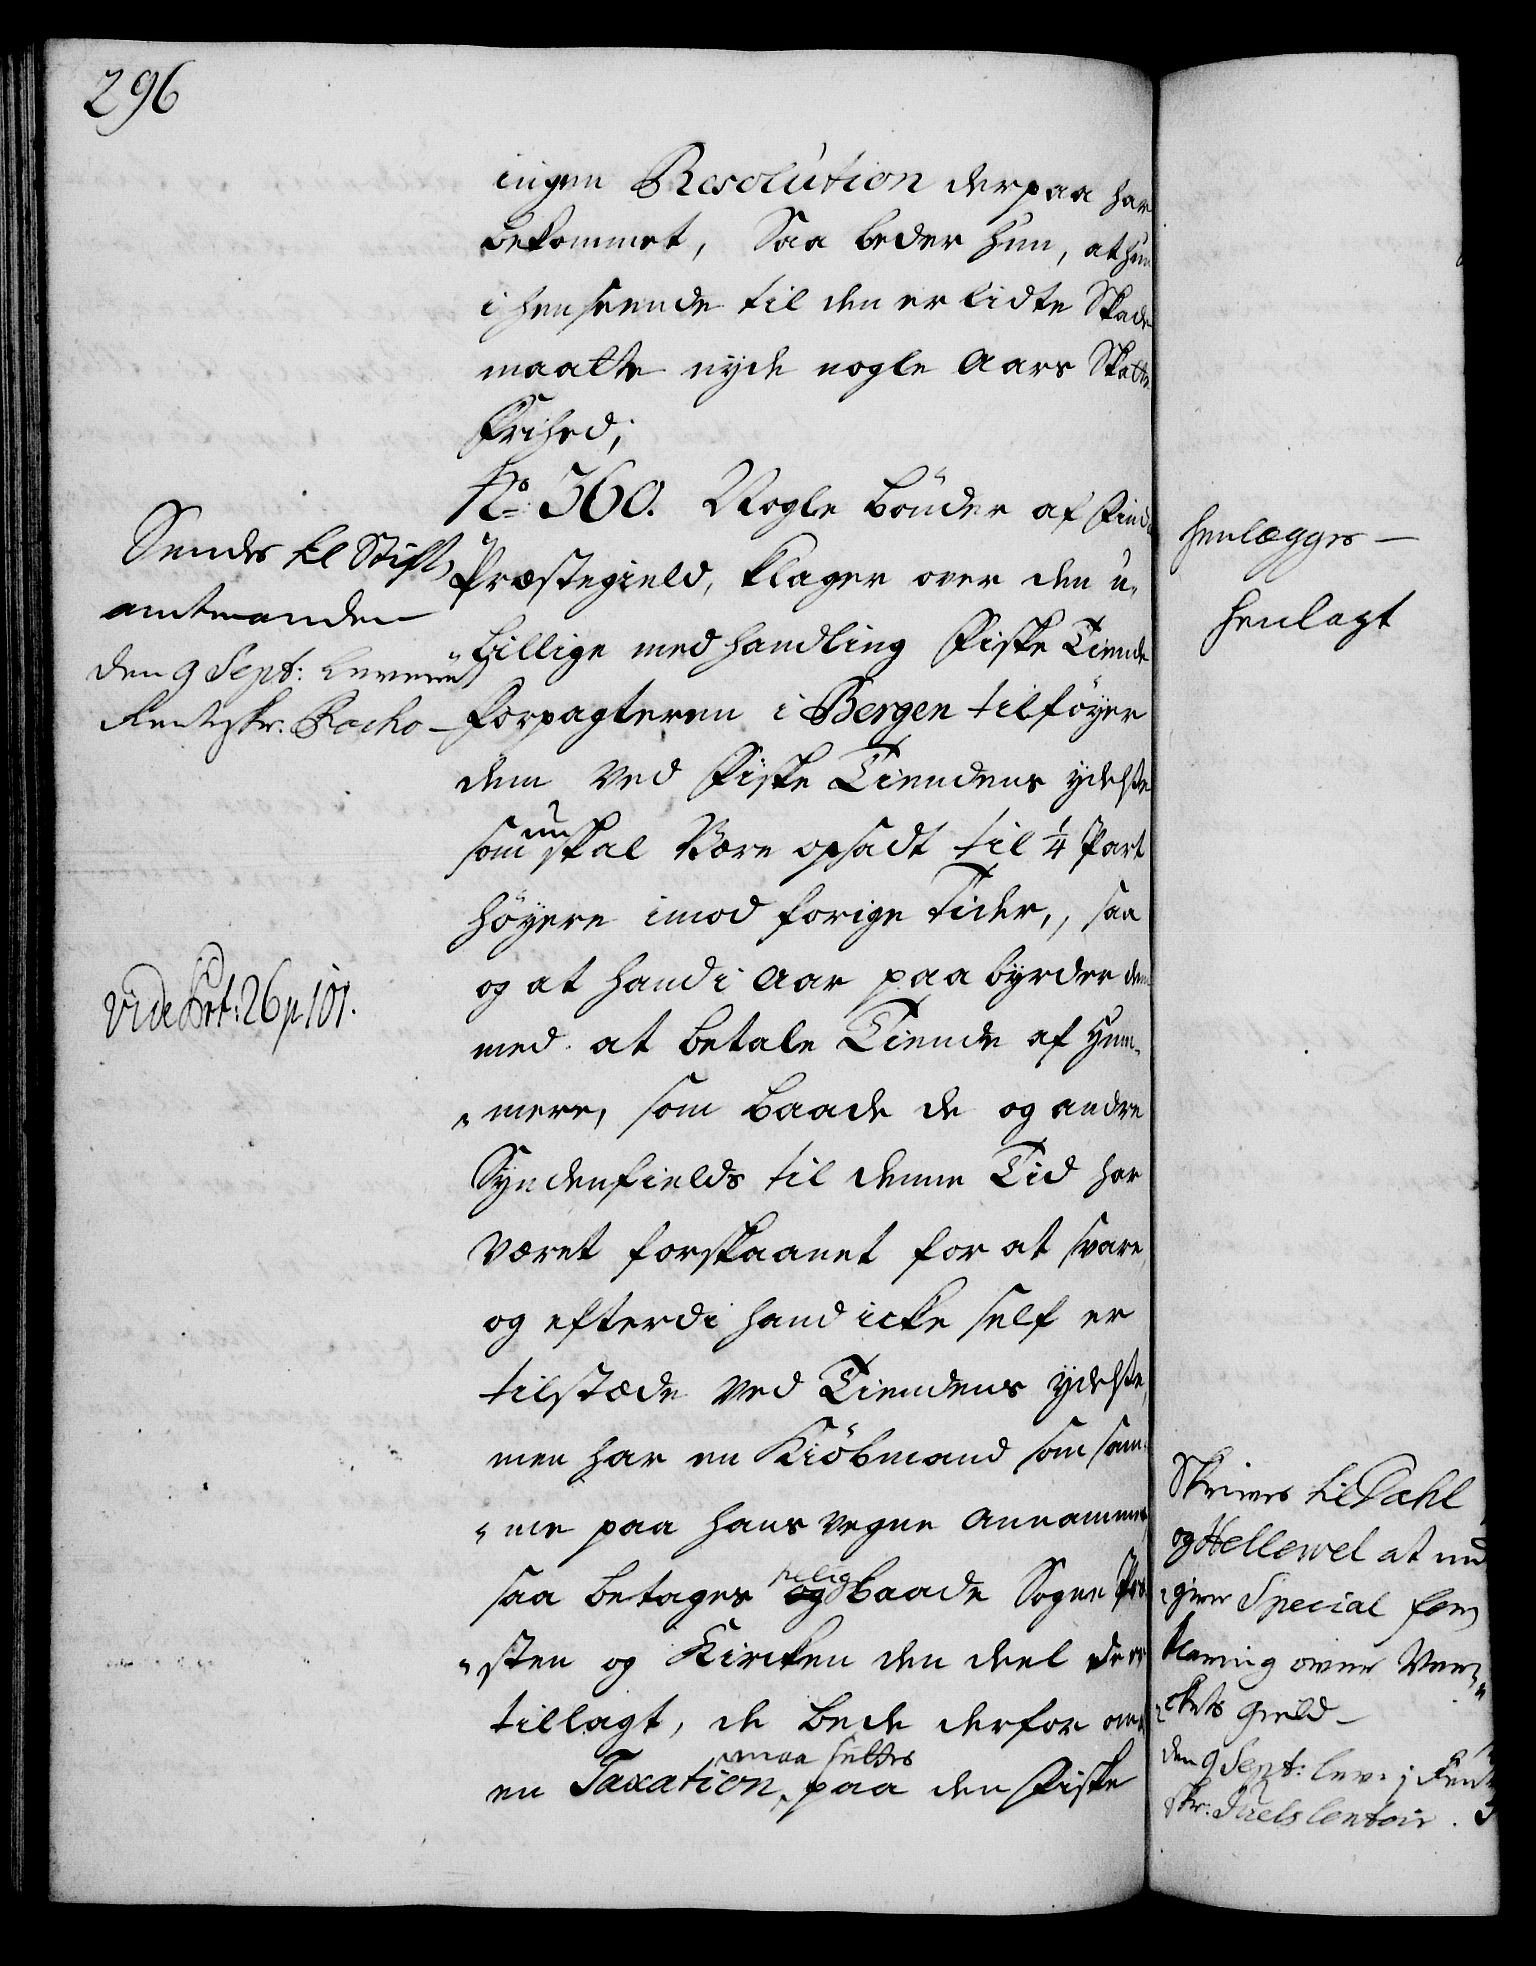 296
ingen Resolution derpaa har
bekommet, Saa beder hun, at hun
i henseende til den er lidte Skade
maatte nyde nogle Aars Skatte
Frihed;
No: 360. Nogle bönder af Find
Præstegield, klager over den u-
billige medhandling Fiske Tiende
forpagteren i Bergen tilföyer
dem ved Fiske Tiendens ydelse
som nu skal være opsadt til 1/4 Part
höyere imod forige Tider, saa
og at hand i Aar paabyrder dem
med at betale Tiende af Hum-
"mere, som baade de og andre
Syndenfields til denne Tid har
været forskaanet for at svare,
og efterdi hand icke self er
tilstæde ved Tiendens ydelse,
men har en Kiöbmand som sam-
"me paa hans vegne annammer
saa betages baade Sogne Præ
"sten og Kircken den deel der er
tillagt, de bede derfor om
en Taxation maa settes paa den Fiske
Sendes til Stift
amtmanden
den 9 Sept: leveret
Rentskr: Rocho
vide Prt: 26 p. 101.
henlægges
henlagt
Skrives til Dahl
og Hellewel at ind
"give Special for
klaring over Ver
"ckets gield
den 9 Sept: lev. i Rent
skr: Juels Contoir.